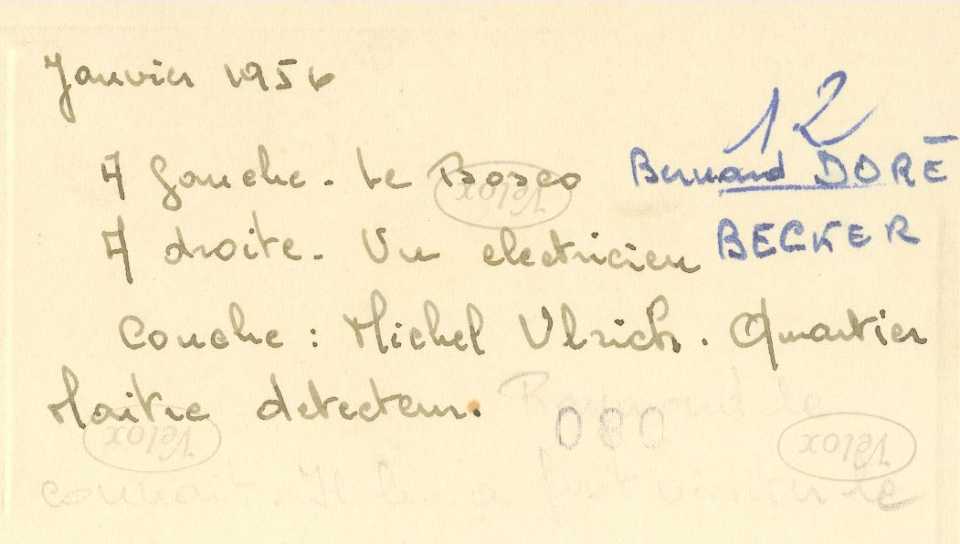 Janvier 1956
12
A gauche. Le Bosco Bernard DORÉ
A droite. Un electricien BECKER
Couché : Michel Ulrich. Quartier
Maitre detecteur.
Raymond le
080
Velox
Velox
Velox
connait. Il lui a fait visiter le